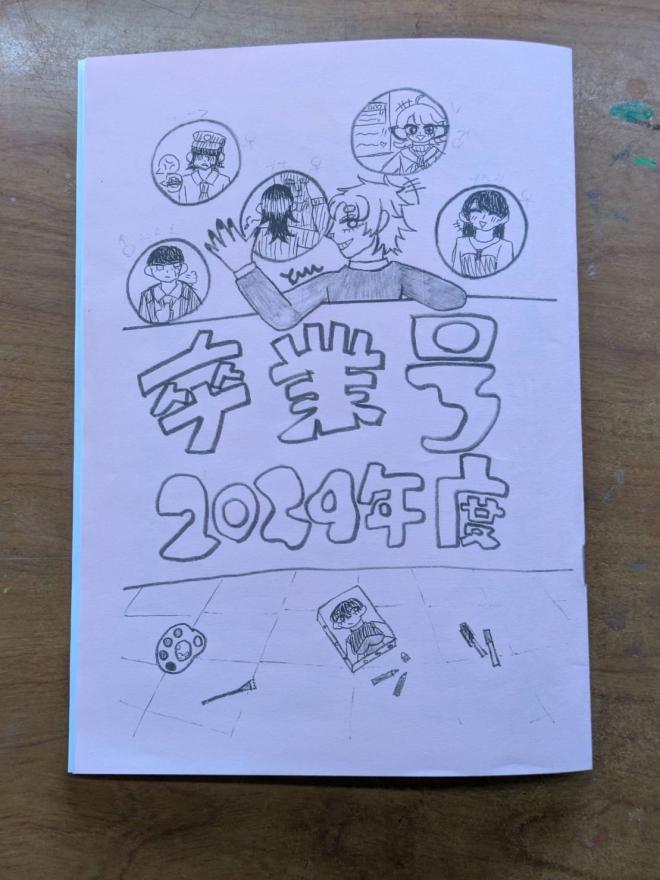 卒業号
2024年度